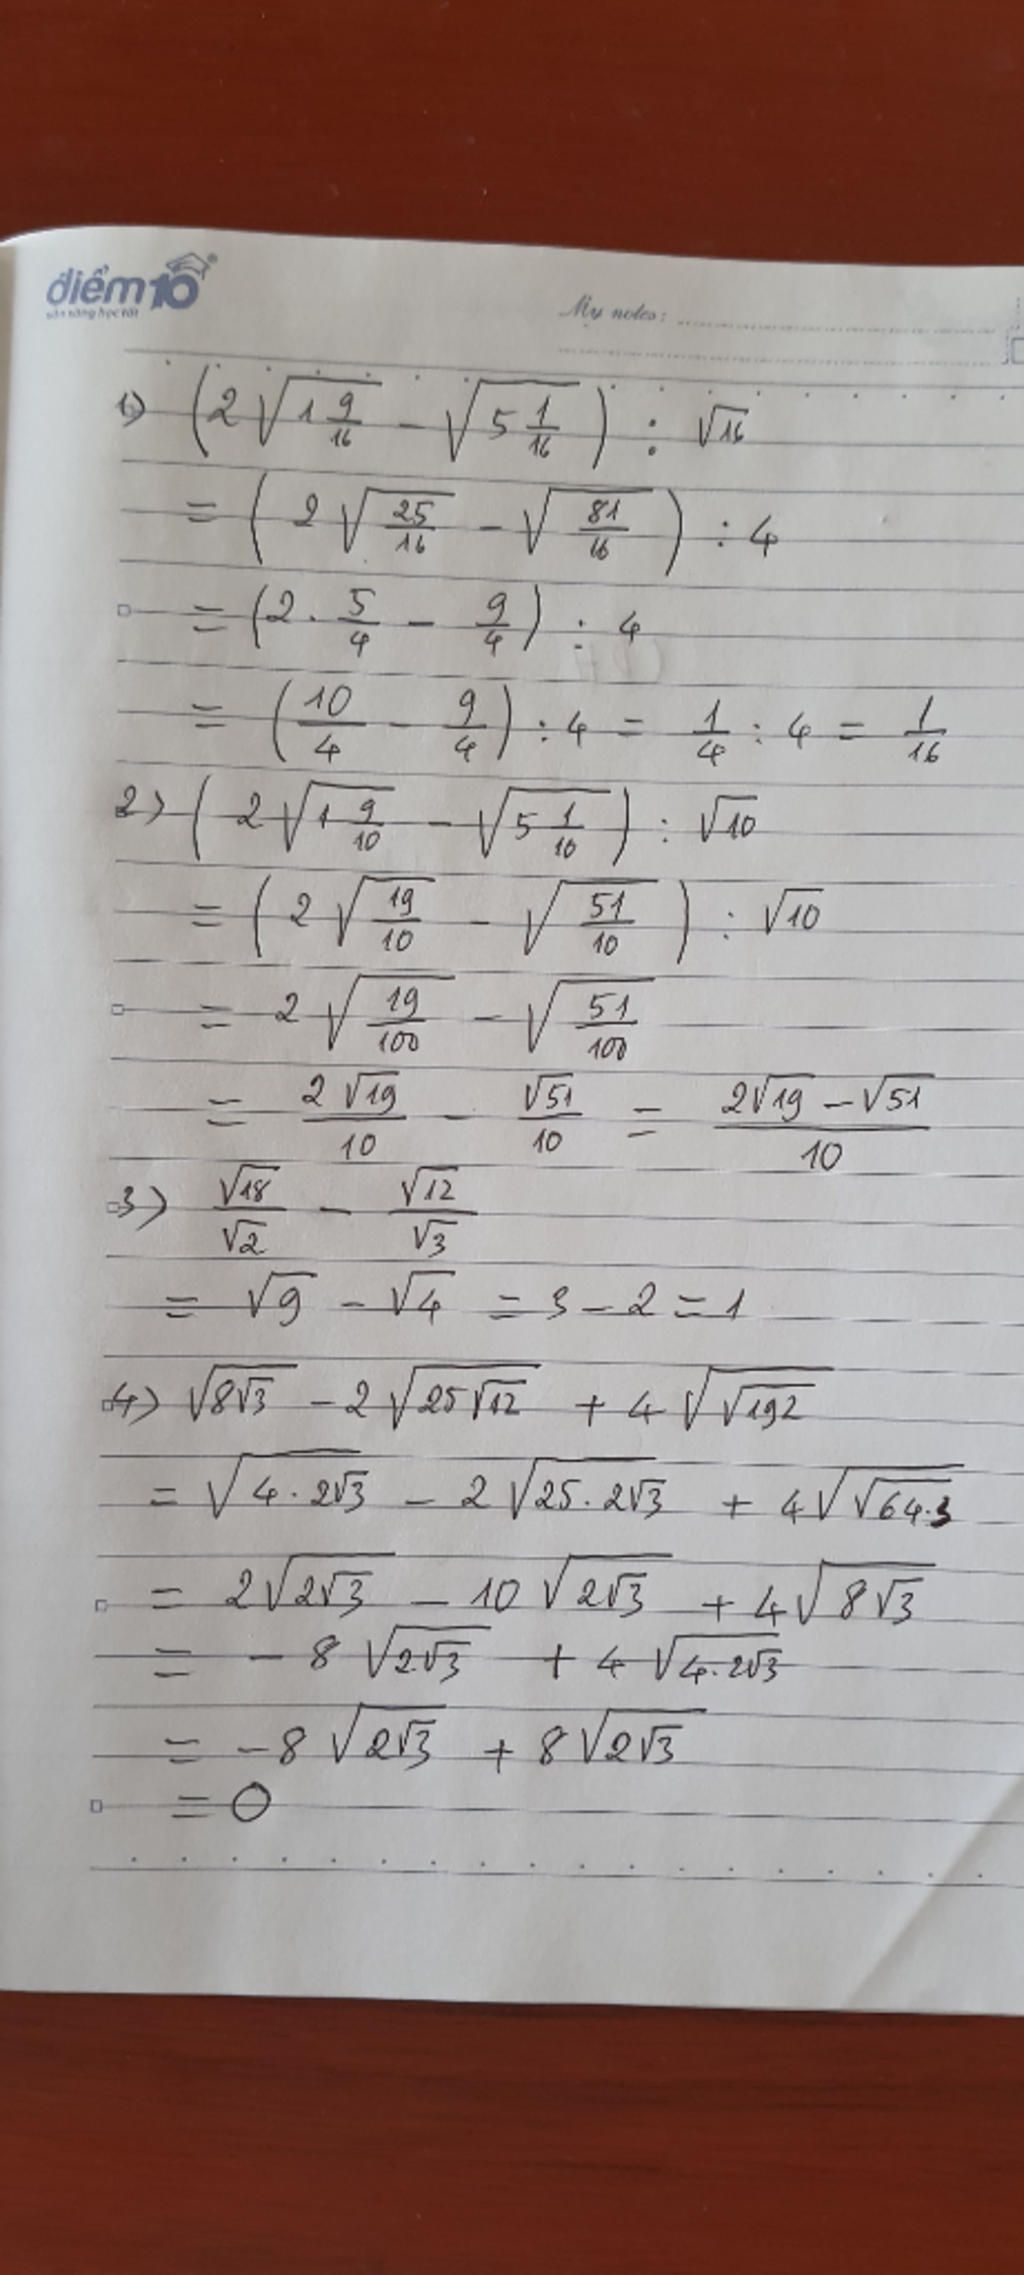 điểm10
sẵn sàng học tốt
My notes:
1) (2√(1 9/16) - √(5 1/16)) : √16
= (2√(25/16) - √(81/16)) : 4
= (2 . 5/4 - 9/4) : 4
= (10/4 - 9/4) : 4 = 1/4 : 4 = 1/16
2) (2√(1 9/10) - √(5 1/10)) : √10
= (2√(19/10) - √(51/10)) : √10
= 2√(19/100) - √(51/100)
= 2√19/10 - √51/10 = (2√19 - √51)/10
3) √18/√2 - √12/√3
= √9 - √4 = 3 - 2 = 1
4) √(8√3) - 2√(25√12) + 4√(√192)
= √(4 . 2√3) - 2√(25 . 2√3) + 4√(√(64.3))
= 2√(2√3) - 10√(2√3) + 4√(8√3)
= - 8√(2√3) + 4√(4.2√3)
= - 8√(2√3) + 8√(2√3)
= 0